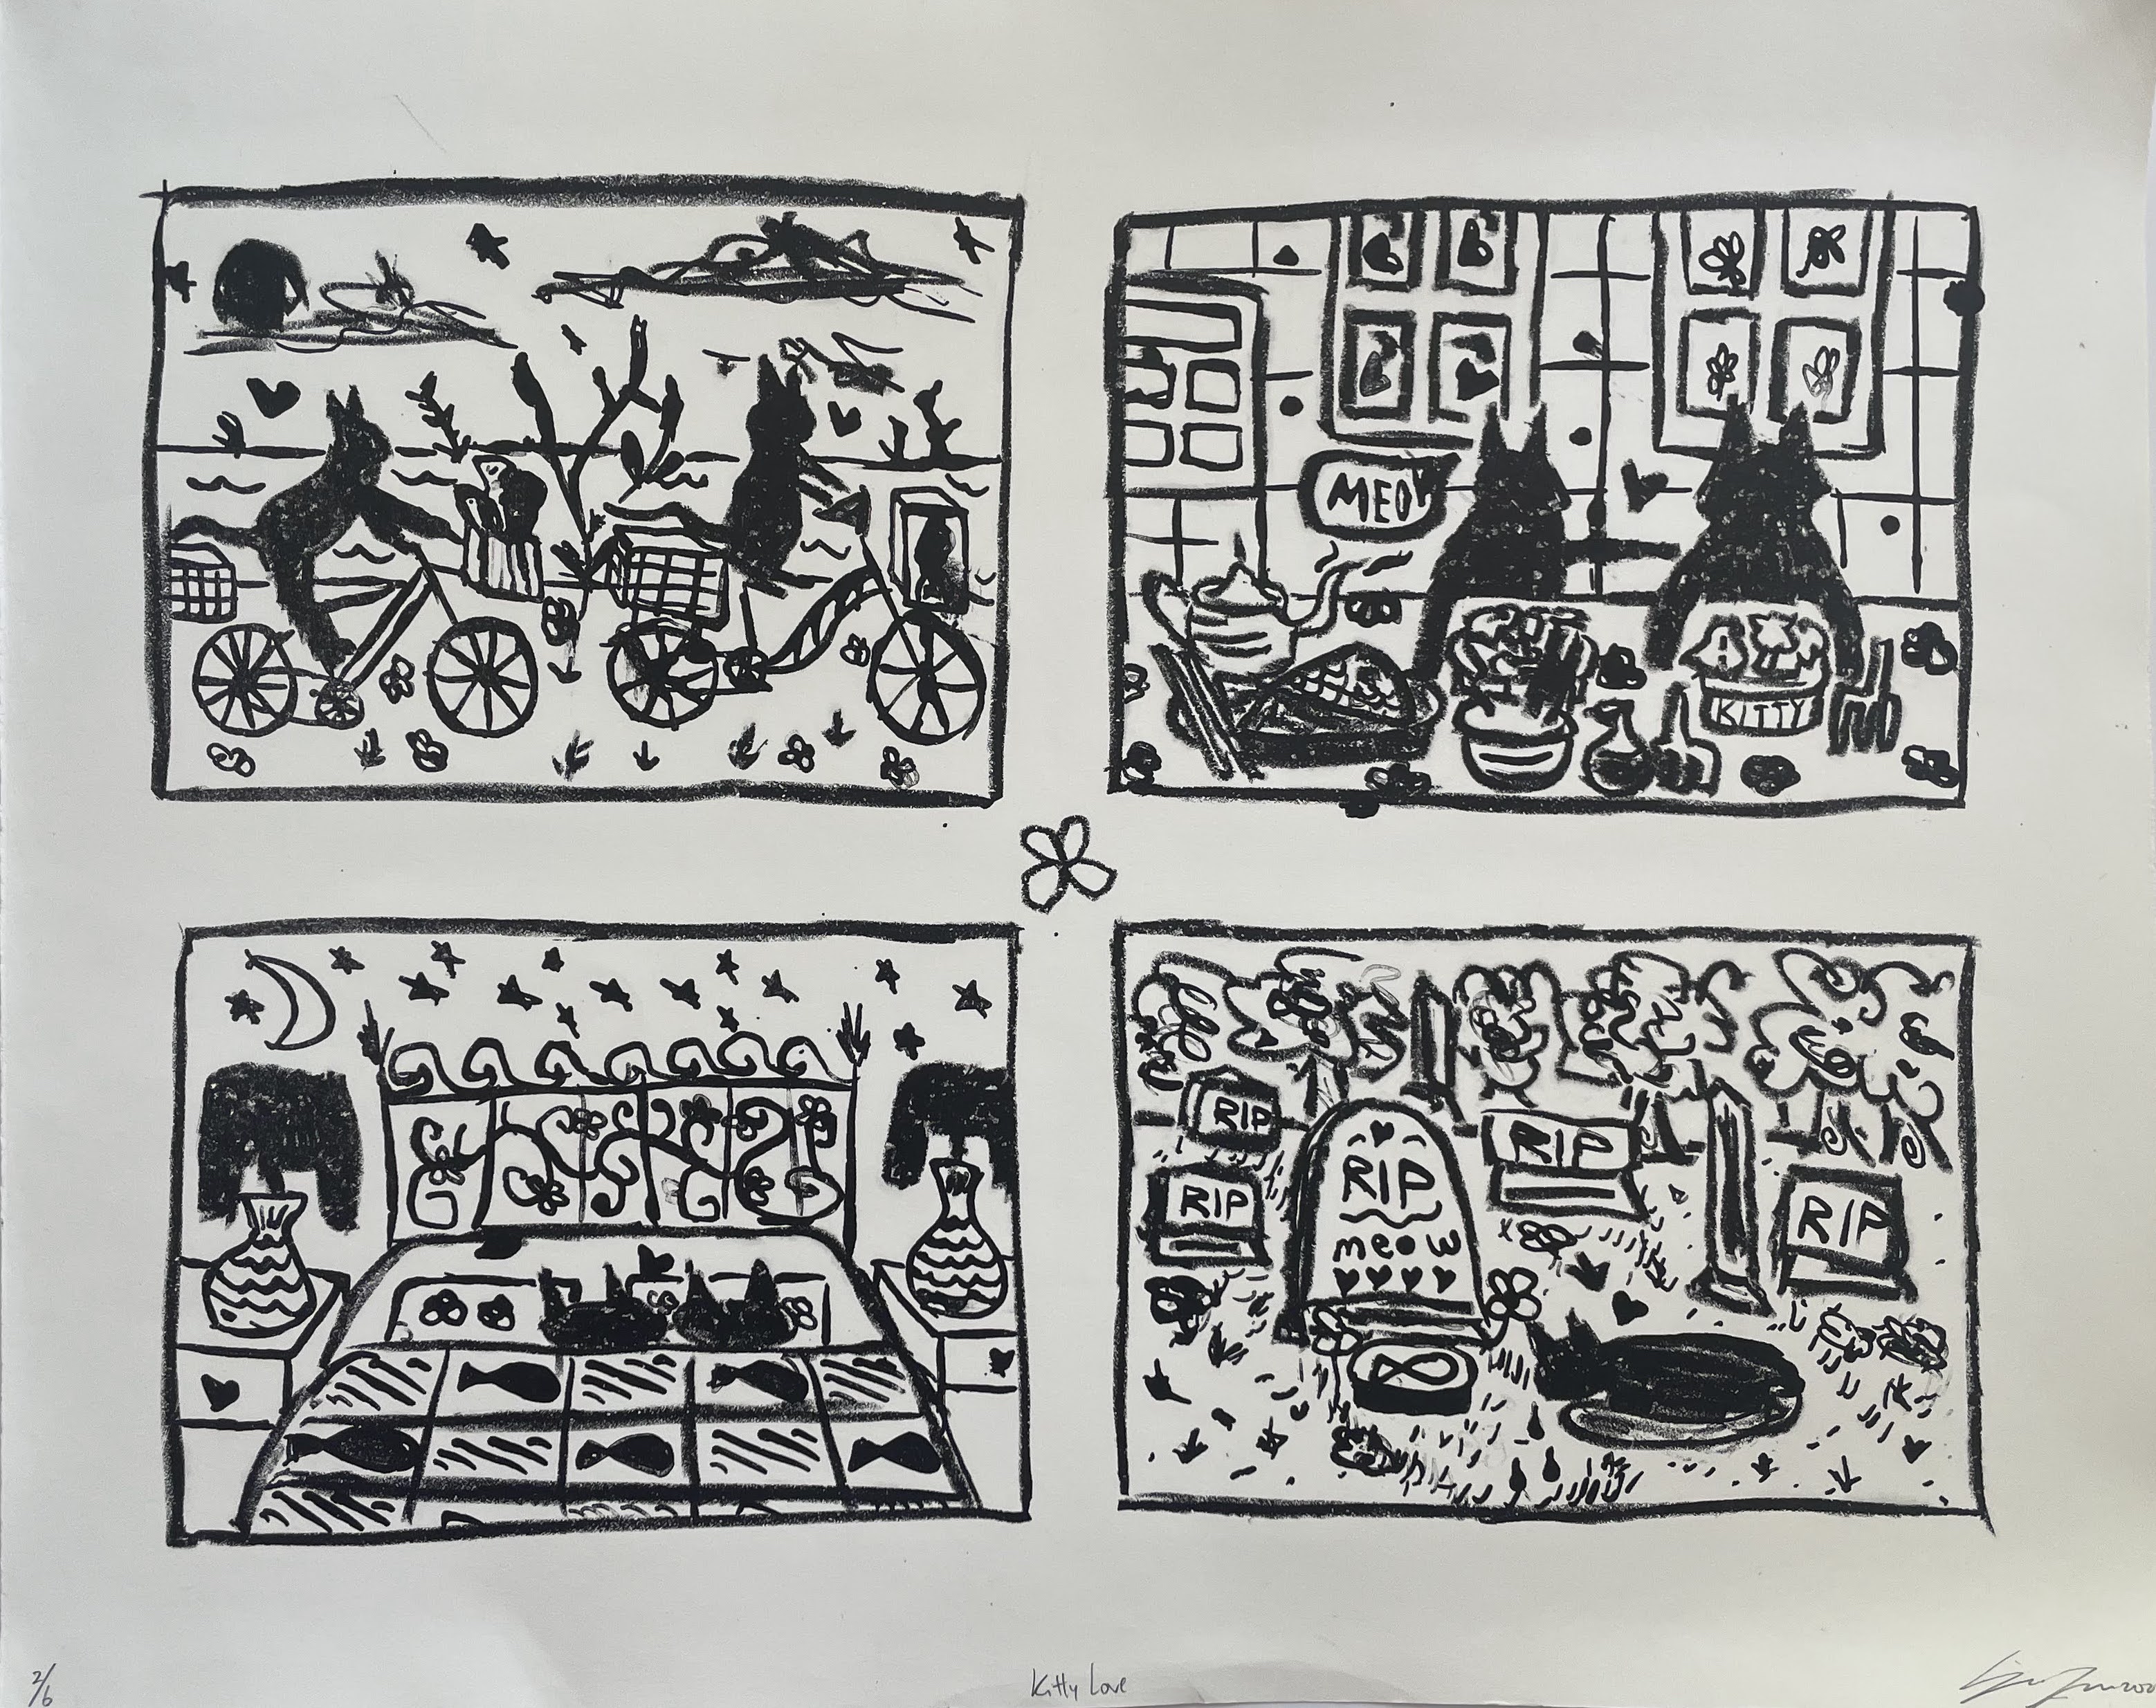 MEOW
KITTY
RIP
RIP
RIP
meow
RIP
RIP
2/6
Kitty Love